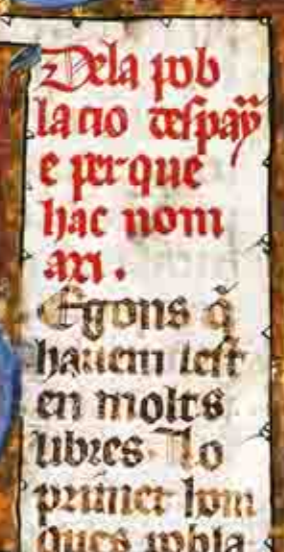 Dela pob
lacio despay̅
e perque
hac nom
axi .
Egons q̃
hauem lest
en molts
libres· Lo
primer hom
ques pobla